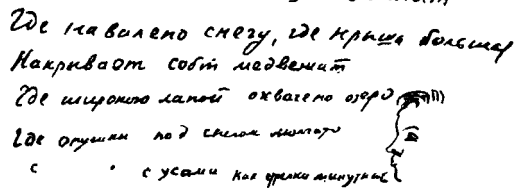 Где навалено снегу, где крыша большая
Накрывает собой медвежат
Где широкою лапой охвачено озеро
Где опушки под снегом
с с усами как стрелки минутные